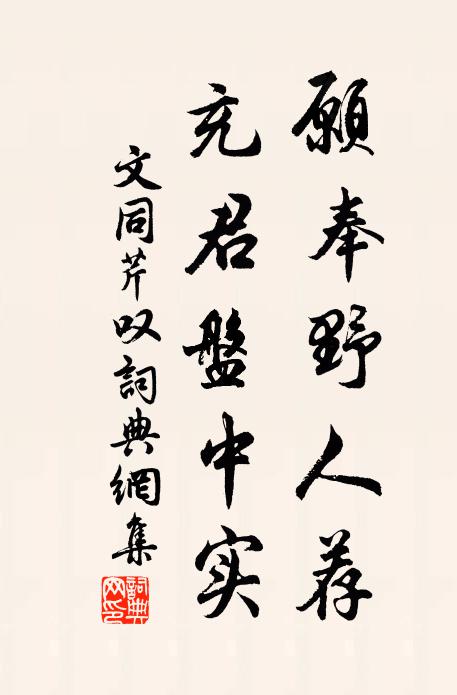 願奉野人荐
充君盤中实
文同芹叹詞典網集
詞典
网印